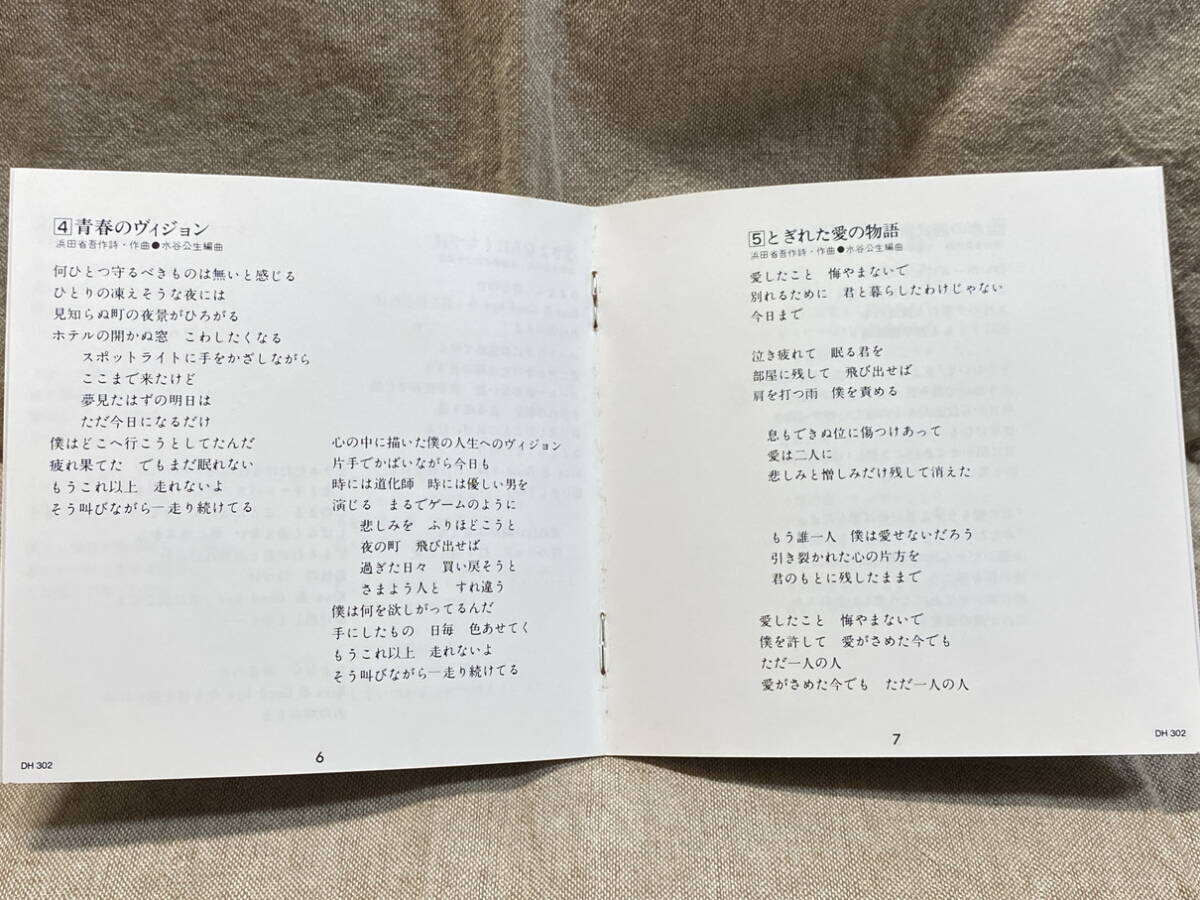 4 青春のヴィジョン
浜田省吾作詩・作曲●水谷公生編曲
何ひとつ守るべきものは無いと感じる
ひとりの凍えそうな夜には
見知らぬ町の夜景がひろがる
ホテルの開かぬ窓　こわしたくなる
スポットライトに手をかざしながら
ここまで来たけど
夢見たはずの明日は
ただ今日になるだけ
僕はどこへ行こうとしてたんだ
疲れ果てた　でもまだ眠れない
もうこれ以上　走れないよ
そう叫びながら―走り続けてる
心の中に描いた僕の人生へのヴィジョン
片手でかばいながら今日も
時には道化師　時には優しい男を
演じる　まるでゲームのように
悲しみを　ふりほどこうと
夜の町　飛び出せば
過ぎた日々　買い戻そうと
さまよう人と　すれ違う
僕は何を欲しがってるんだ
手にしたもの　日毎　色あせてく
もうこれ以上　走れないよ
そう叫びながら―走り続けてる
DH 302
6
5 とぎれた愛の物語
浜田省吾作詩・作曲●水谷公生編曲
愛したこと　悔やまないで
別れるために　君と暮らしたわけじゃない
今日まで
泣き疲れて　眠る君を
部屋に残して　飛び出せば
肩を打つ雨　僕を責める
息もできぬ位に傷つけあって
愛は二人に
悲しみと憎しみだけ残して消えた
もう誰一人　僕は愛せないだろう
引き裂かれた心の片方を
君のもとに残したままで
愛したこと　悔やまないで
僕を許して　愛がさめた今でも
ただ一人の人
愛がさめた今でも　ただ一人の人
7
DH 302